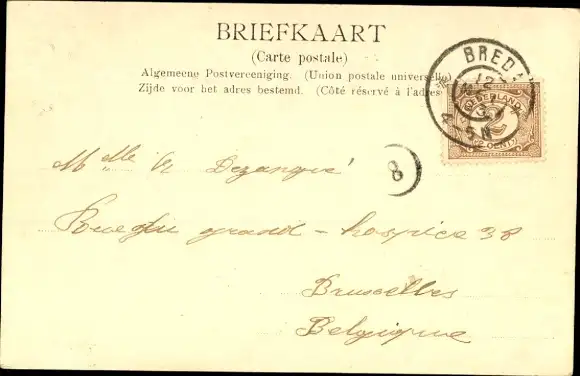 BRIEFKAART
(Carte postale)
Algemeene Postvereeniging. (Union postale universelle)
Zijde voor het adres bestemd. (Côté réservé à l'adres
BREDA
12
4-5N
NEDERLAND
2
(2 CENT)
8
Melle
grand-hospice 38
Bruxelles
Belgique